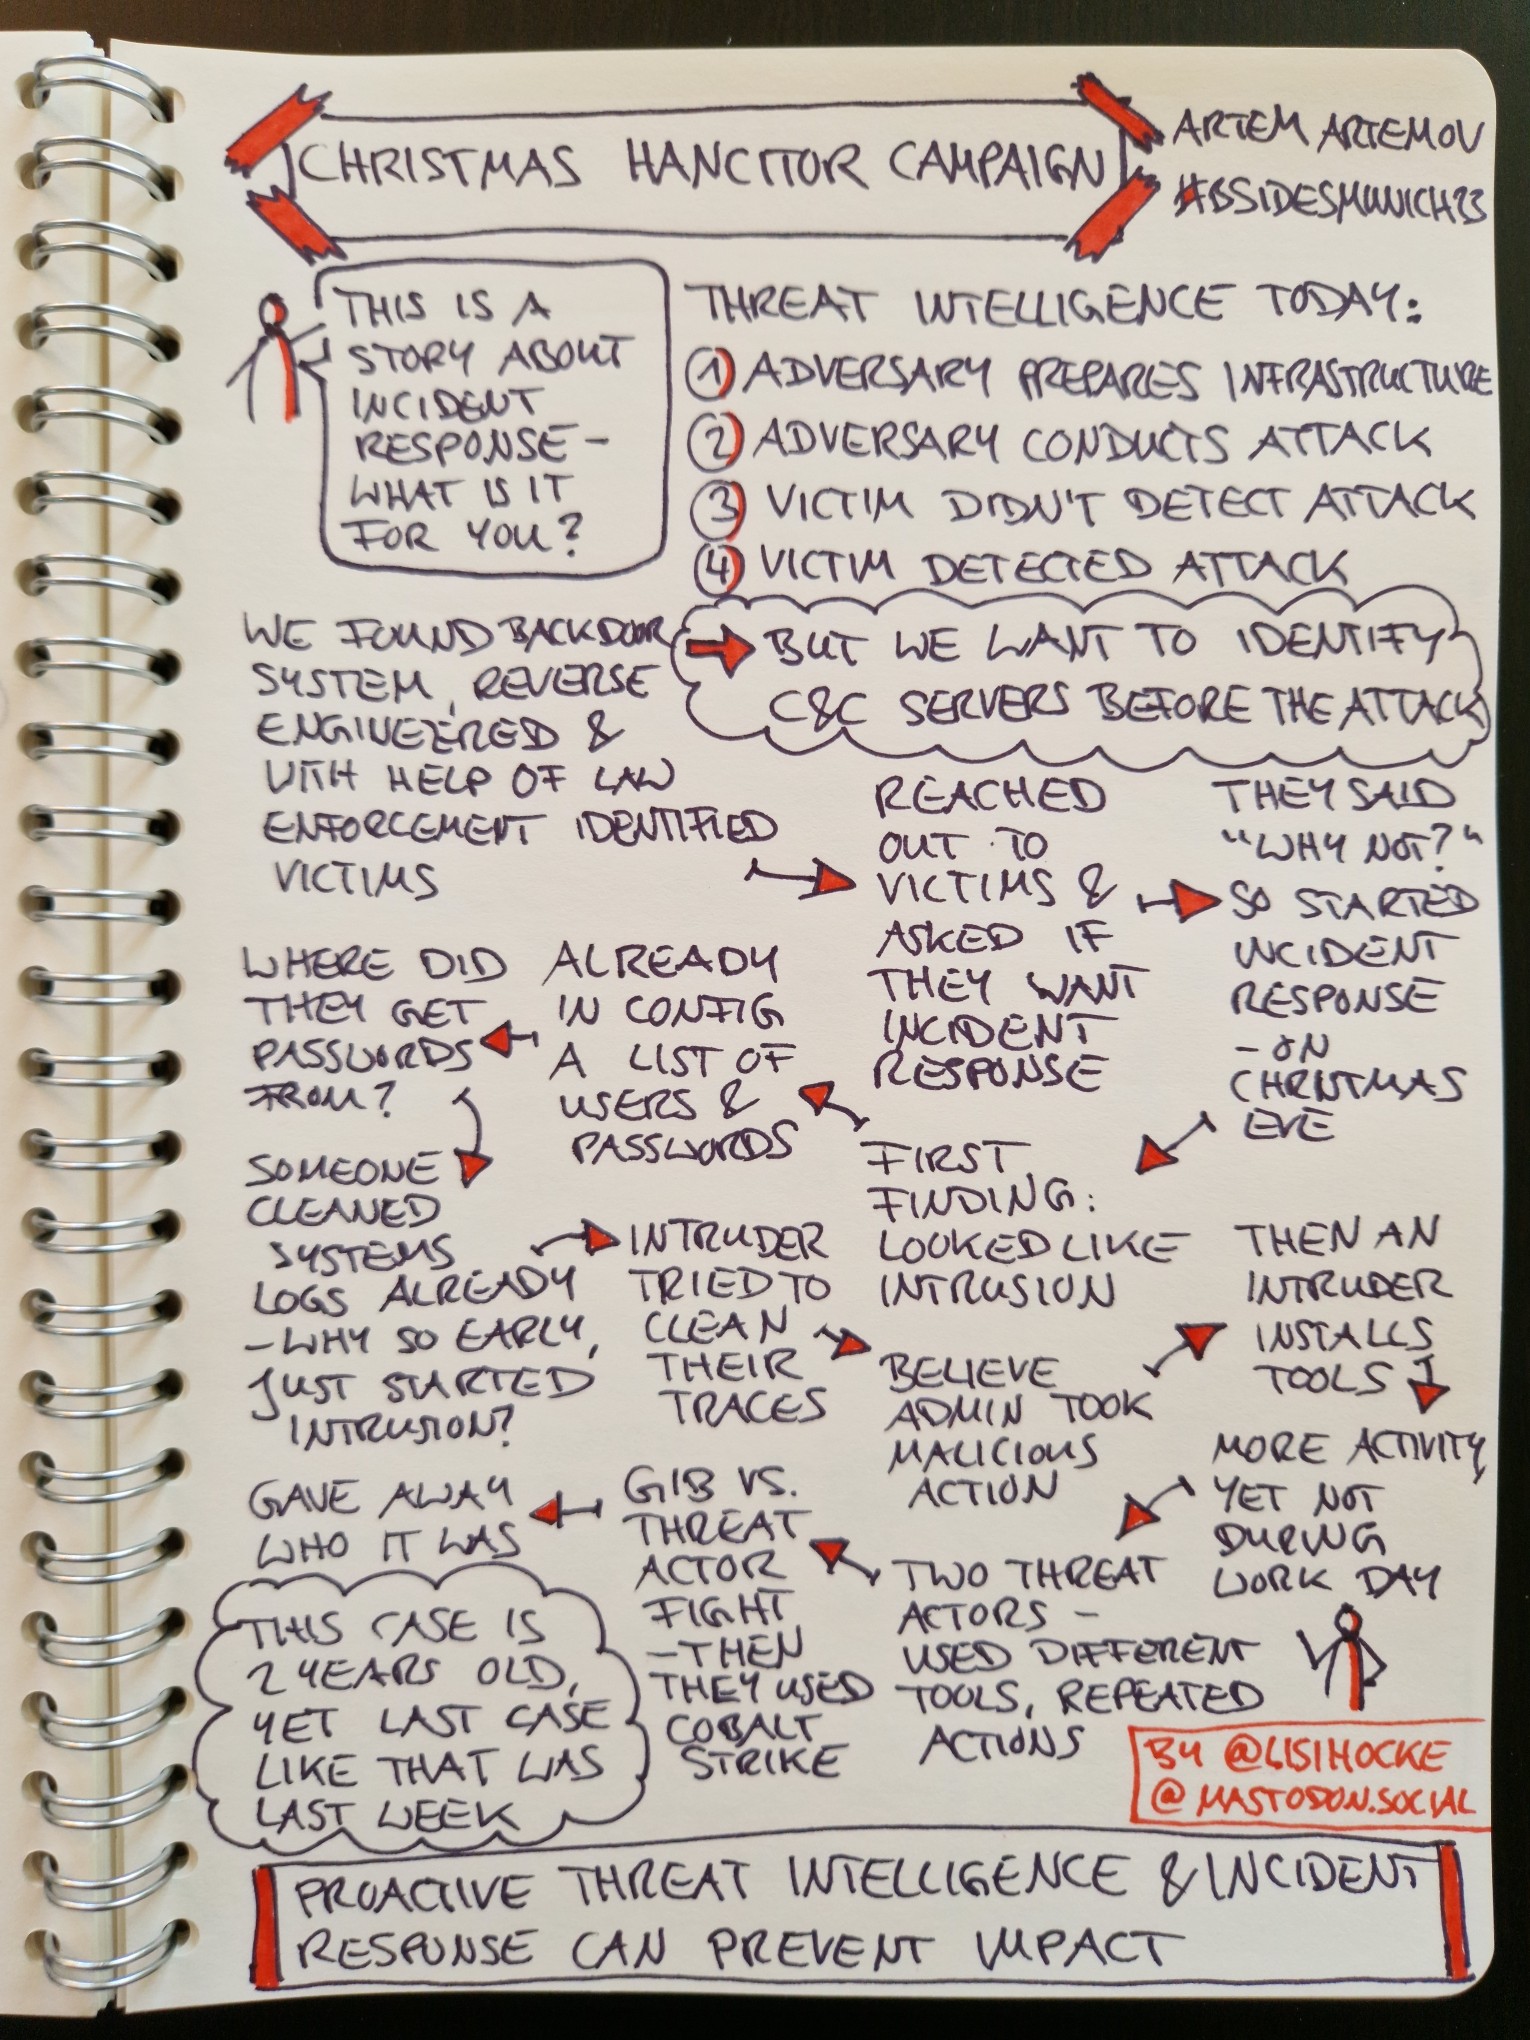 CHRISTMAS HANCITOR CAMPAIGN
ARTEM ARTEMOV
#BSIDESMUNICH23
THIS IS A
STORY ABOUT
INCIDENT
RESPONSE –
WHAT IS IT
FOR YOU?
THREAT INTELLIGENCE TODAY:
1 ADVERSARY PREPARES INFRASTRUCTURE
2 ADVERSARY CONDUCTS ATTACK
3 VICTIM DIDN'T DETECT ATTACK
4 VICTIM DETECTED ATTACK
BUT WE WANT TO IDENTIFY
C&C SERVERS BEFORE THE ATTACK
WE FOUND BACKDOOR
SYSTEM, REVERSE
ENGINEERED &
WITH HELP OF LAW
ENFORCEMENT IDENTIFIED
VICTIMS
REACHED
OUT TO
VICTIMS &
ASKED IF
THEY WANT
INCIDENT
RESPONSE
THEY SAID
"WHY NOT?"
SO STARTED
INCIDENT
RESPONSE
– ON
CHRISTMAS
EVE
FIRST
FINDING:
LOOKED LIKE
INTRUSION
ALREADY
IN CONFIG
A LIST OF
USERS &
PASSWORDS
WHERE DID
THEY GET
PASSWORDS
FROM?
SOMEONE
CLEANED
SYSTEMS
LOGS ALREADY
– WHY SO EARLY,
JUST STARTED
INTRUSION?
INTRUDER
TRIED TO
CLEAN
THEIR
TRACES
BELIEVE
ADMIN TOOK
MALICIOUS
ACTION
THEN AN
INTRUDER
INSTALLS
TOOLS
MORE ACTIVITY,
YET NOT
DURING
WORK DAY
TWO THREAT
ACTORS –
USED DIFFERENT
TOOLS, REPEATED
ACTIONS
GIB VS.
THREAT
ACTOR
FIGHT
– THEN
THEY USED
COBALT
STRIKE
GAVE AWAY
WHO IT WAS
THIS CASE IS
2 YEARS OLD,
YET LAST CASE
LIKE THAT WAS
LAST WEEK
BY @LISIHOCKE
@MASTODON.SOCIAL
PROACTIVE THREAT INTELLIGENCE & INCIDENT
RESPONSE CAN PREVENT IMPACT